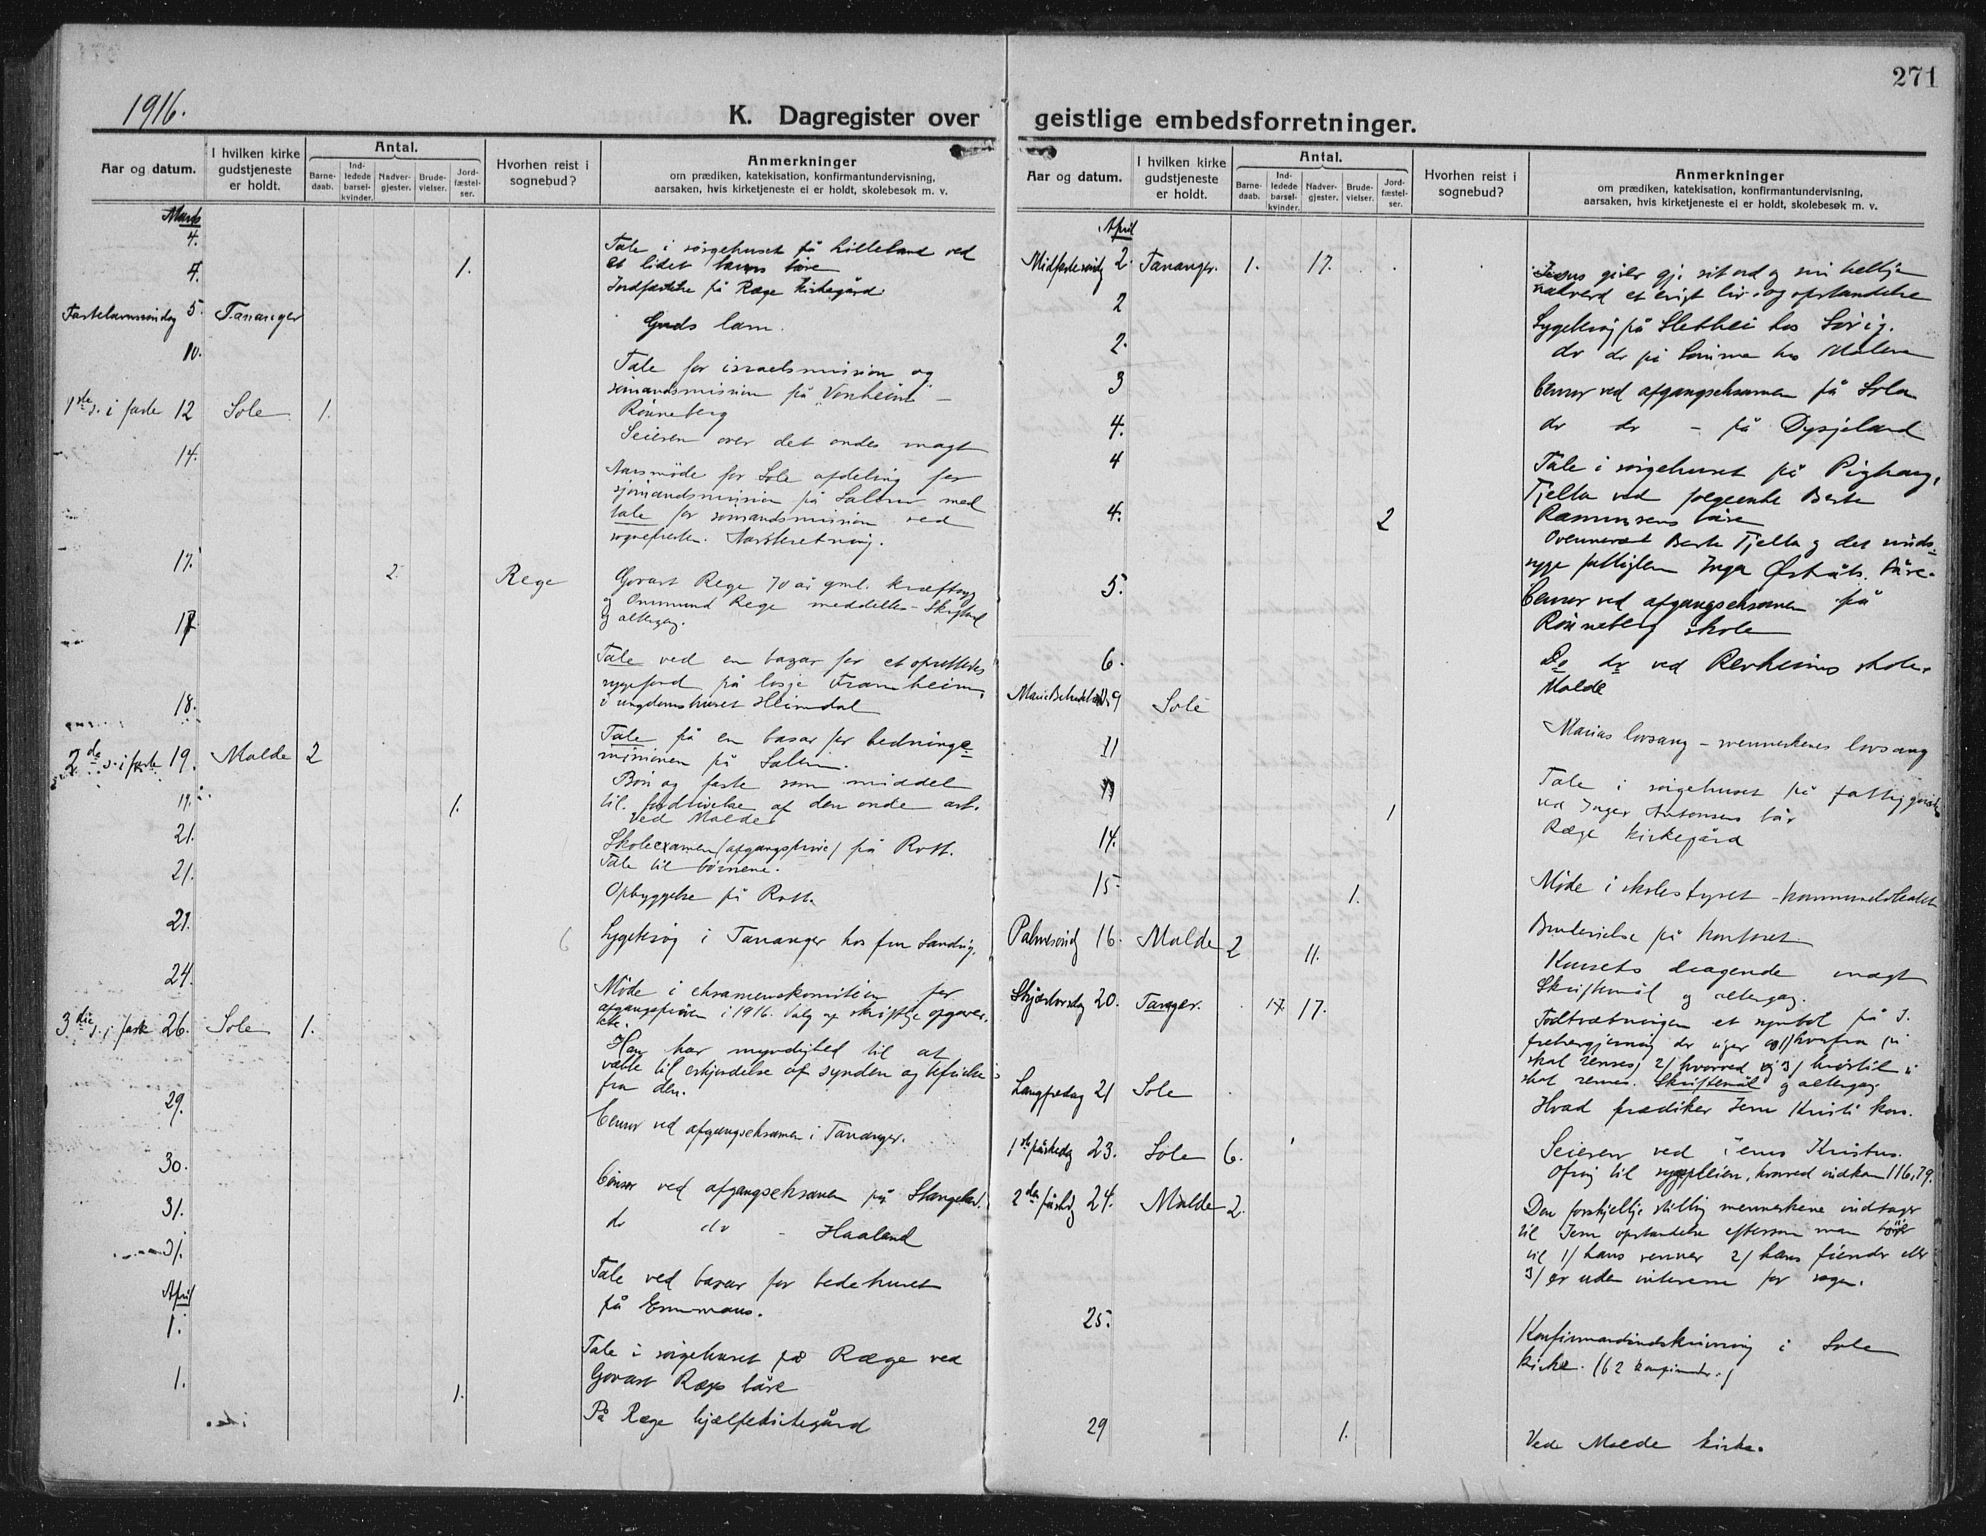 271
1916.
K. Dagregister over geistlige embedsforretninger.
Aar og datum.
I hvilken kirke gudstjeneste er holdt.
Antal.
Barne-daab.
Ind-ledede barsel-kvinder.
Nadver-gjester.
Brude-vielser.
Jord-fæstel-ser.
Hvorhen reist i sognebud?
Anmerkninger
om prædiken, katekisation, konfirmantundervisning,
aarsaken, hvis kirketjeneste ei er holdt, skolebesøk m. v.
Marts
4. Tale i sørgehuset på Lilleland ved
et lidet barns båre
4. 1. Jordfæstelse på Ræge kirkegård
Fastelavnssøndag 5. Tananger Guds lam.
10. Tale for israelsmission og
sømandsmission på Vonheim -
Rønneberg
1ste s. i faste 12 Sole 1. Seieren over det ondes magt
14. Aarsmøde for Sole afdeling for
sjømandsmission på Salem med
tale for sømandsmission ved
sognepresten. Aarsberetning.
17. 2. Rege Govart Rege 70 år gml. kræftsyg
og Ommund Rege meddeltes Skriftemål
og altergang.
17 Tale ved en bazar for et oprettet
sygefond på losje Framheim,
i ungdomshuset Heimdal
18. Tale på en basar for hedninge-
missionen på Salem.
2de s. i faste 19. Malde 2 Bøn og faste som middel
til fordrivelse af den onde art.
19. 1. Ved Malde
21. Skoleexamen (afgangsprøve) på Rott.
Tale til børnene.
21. Opbyggelse på Rott.
21. Sygebesøg i Tananger hos fru Sandvig.
24. Møde i eksamenskomiteen for
afgangsprøven i 1916. Valg af skriftlige opgaver.
etc.
3die s. i faste 26. Sole 1. Han har myndighed til at
vække til erkjendelse af synden og befrielse
fra den.
29. Censor ved afgangseksamen i Tananger.
30. Censor ved afgangseksamen på Stangeland.
31. do do - Haaland
31. Tale ved basar for bedehuset
på Emmaus.
April
1. Tale i sørgehuset på Ræge ved
Govart Ræges båre
1. 1. På Ræge hjælpekirkegård
Aar og datum.
I hvilken kirke gudstjeneste er holdt.
Antal.
Barne-daab.
Ind-ledede barsel-kvinder.
Nadver-gjester.
Brude-vielser.
Jord-fæstel-ser.
Hvorhen reist i sognebud?
Anmerkninger
om prædiken, katekisation, konfirmantundervisning,
aarsaken, hvis kirketjeneste ei er holdt, skolebesøk m. v.
April
Midfastesøndag 2. Tananger. 1. 17. Jesus giver gj. sit ord og sin hellige
nadverd et evigt liv og opstandelse
2 Sygebesøg på Slethei hos
2. do do på Sømme hos Malena
3 Censor ved afgangseksamen på Sola
4. do do - på Dysjeland
4 Tale i sørgehuset på
Tjelta ved Berte
Rasmusens båre
4. 2 Ovennævnte Berte Tjelta og det sinds-
syge fattiglem Inga båre.
5. Censor ved afgangseksamen på
Rønneberg skole
6. Do do ved Revheims skole.
Malde
Mariæ Bebudelsesd. 9 Sole Marias lovsang - menneskenes lovsang
11 Tale i sørgehuset på fattiggården
ved Inger Antonsens båre
11 1 Ræge kirkegård
14. Møde i skolestyret - kommunelokalet
15 1. Brudevielse på kontoret
Palmesøndag 16. Malde 2 11. Korsets dragende magt
Skriftemål og altergang.
Skjærtorsdag 20. Tananger. 17 17. Fodtvætningen et symbol på J.
frelsergjerning der siger os 1/ hvorfra vi
skal renses, 2/ hvorved og 3/ hvortil vi
skal renses. Skriftemål og altergang
Langfredag 21 Sole Hvad prædiker Jesu Kristi kors.
1ste påskedag 23. Sole 6. Seieren ved Jesus Kristus.
Ofring til sygepleien, hvorved indkom 116,79.
2den påskedag 24. Malde 2. Den forskjellige stilling menneskene indtager
til Jesu opstandelse eftersom man hører
til 1/ hans venner 2/ hans fiender eller
3/ er uden interesse for sagen.
25. Konfirmandindskrivning i Sole
kirke. (62 konfirmander.)
29 1. Ved Malde kirke.